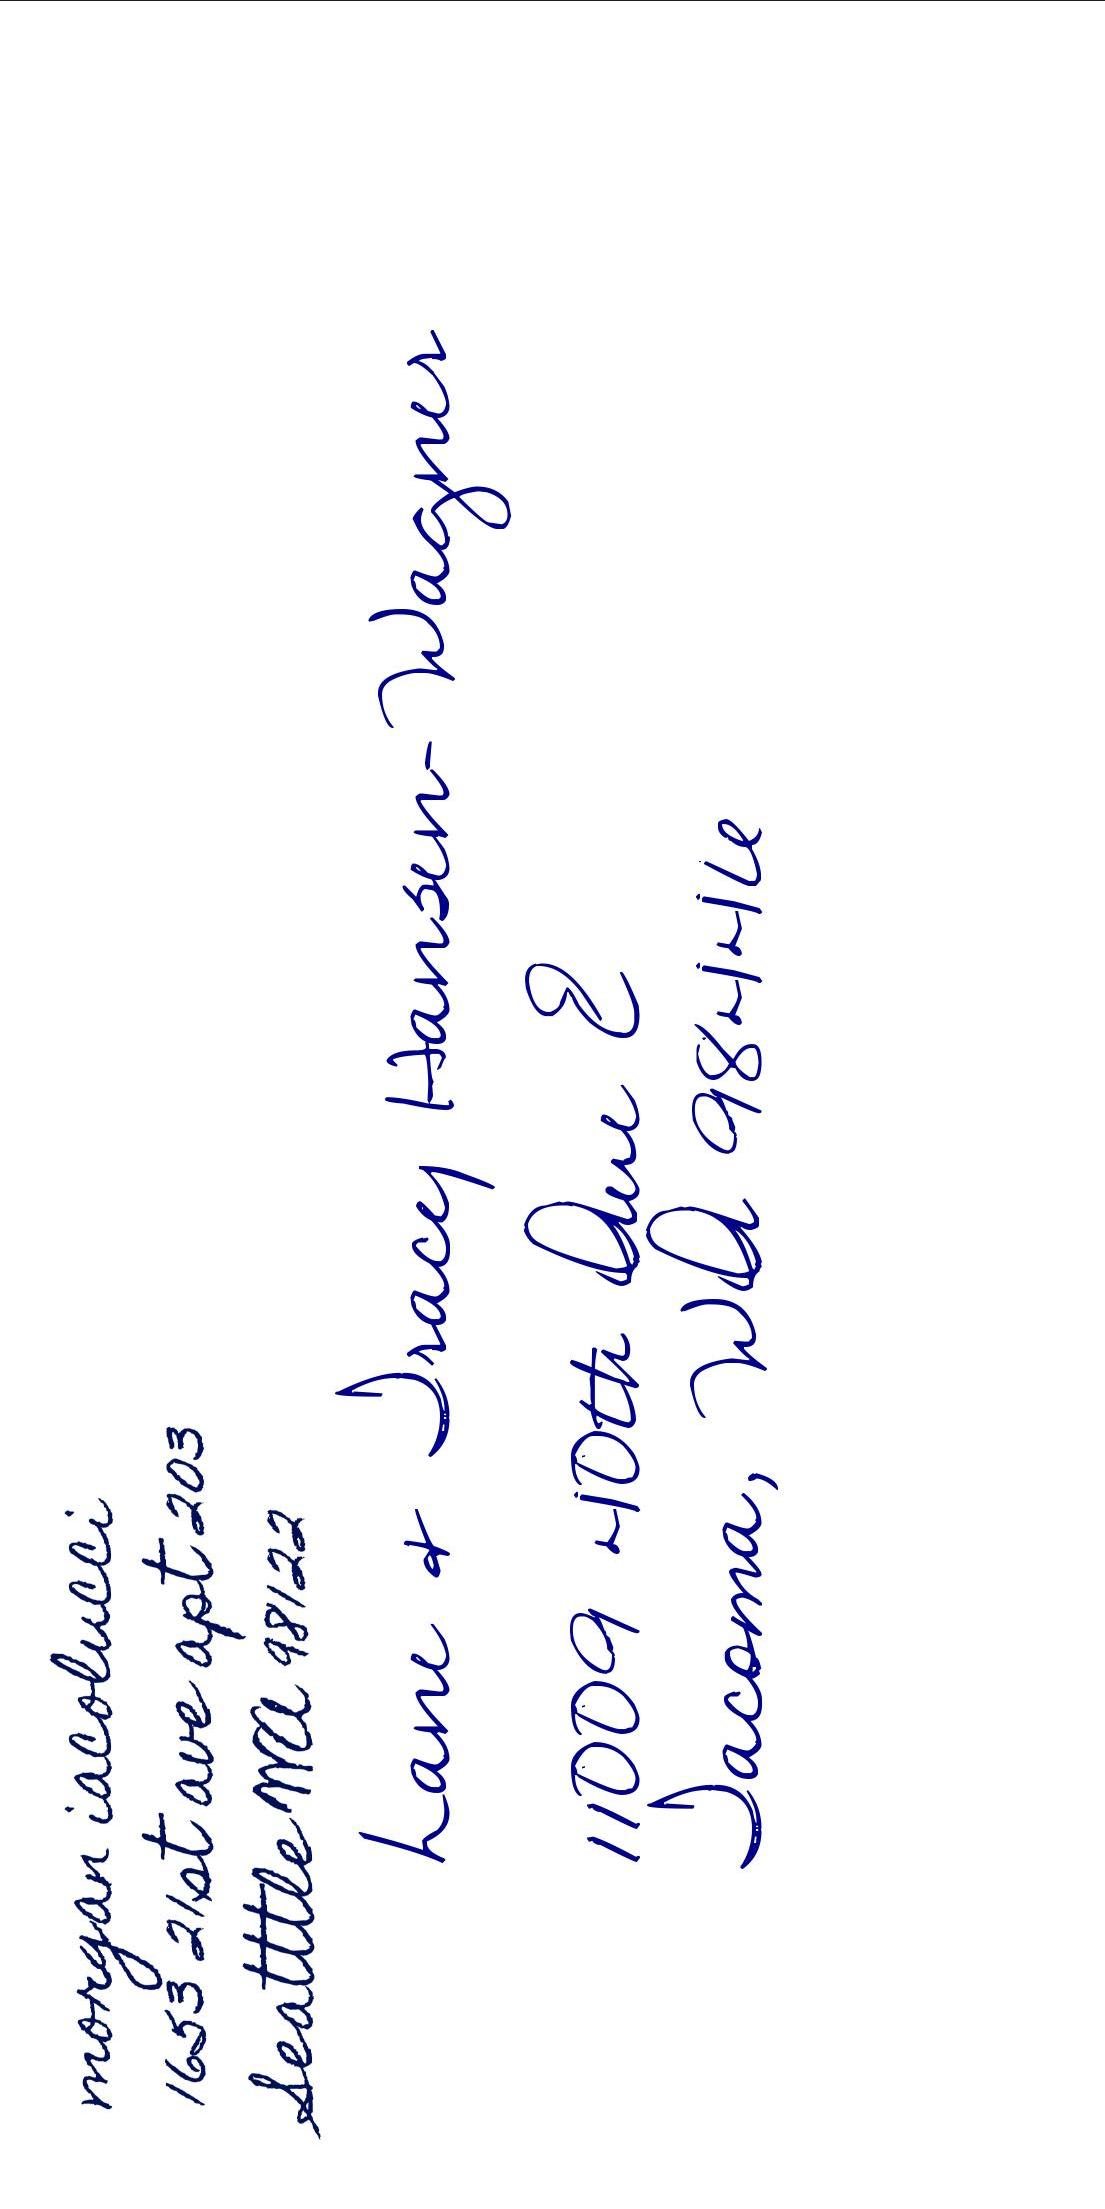 morgan iacolucci
1653 21st ave apt 203
Seatttle WA 98122
Lane & Tracey Hansen-Wagner
11009 40th Ave E
Tacoma, WA 98446